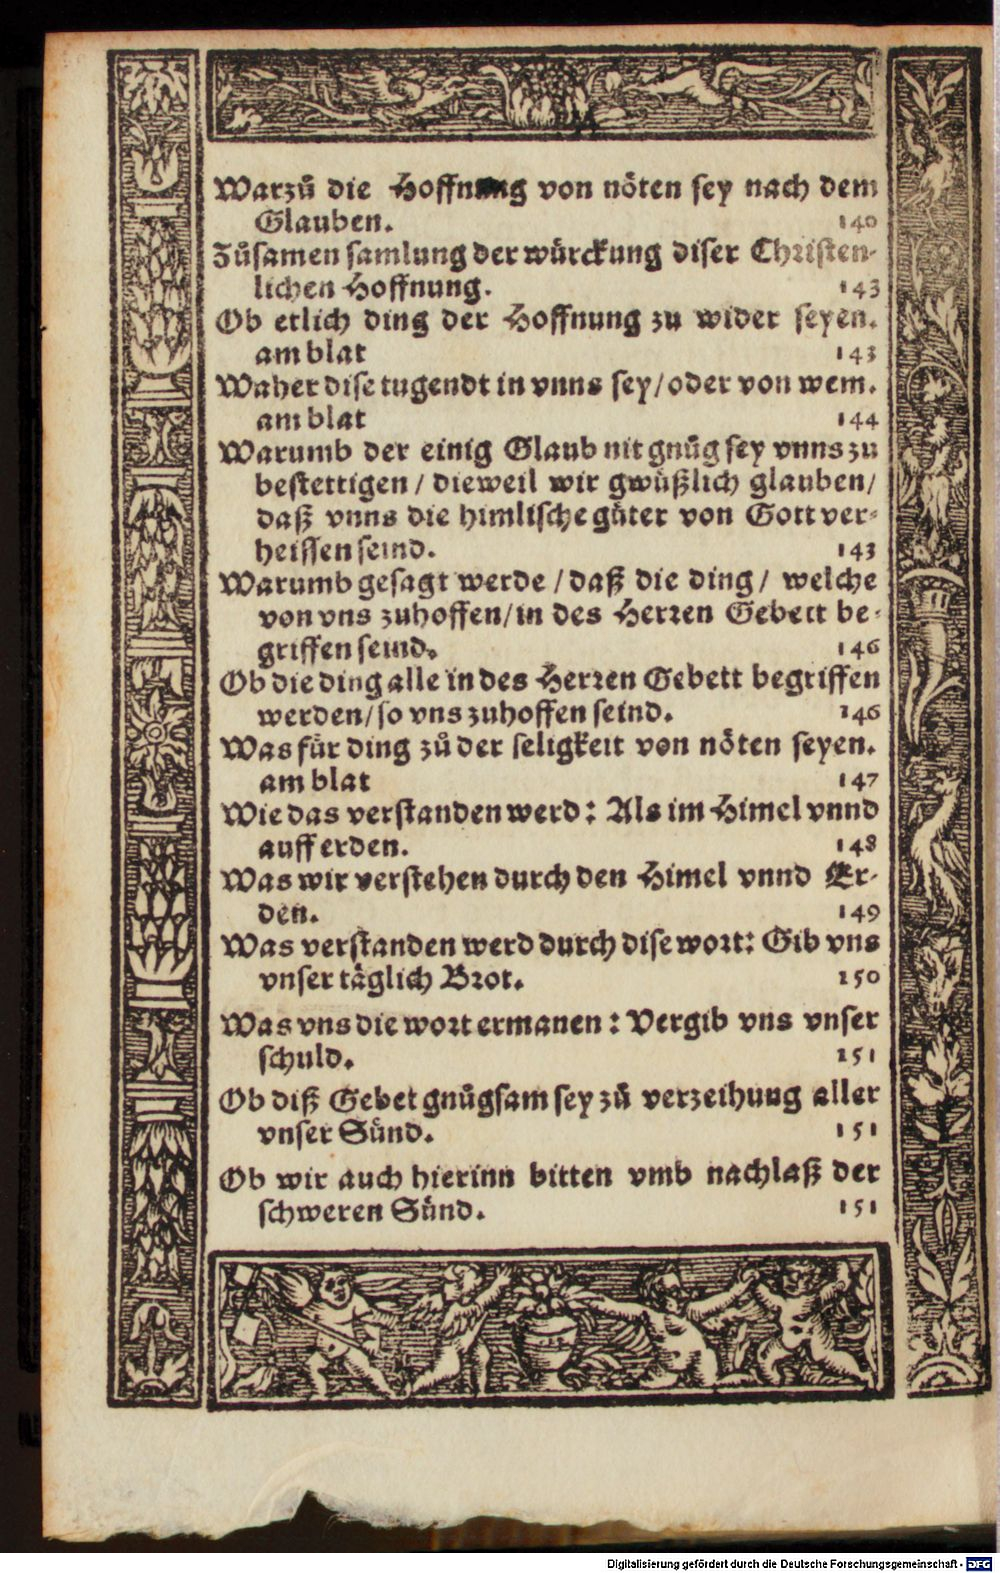 Warzů die Hoffnung von nöten sey nach dem
Glauben. 140
Zůsamen samlung der würckung diser Christen-
lichen Hoffnung. 143
Ob etlich ding der Hoffnung zu wider seyen.
am blat 143
Waher dise tugendt in vnns sey/oder von wem.
am blat 144
Warumb der einig Glaub nit gnůg sey vnns zu
bestettigen / dieweil wir gwüßlich glauben/
daß vnns die himlische güter von Gott ver-
heissen seind. 143
Warumb gesagt werde / daß die ding / welche
von vns zuhoffen/in des Herren Gebett be-
griffen seind. 146
Ob die ding alle in des Herren Gebett begriffen
werden/so vns zuhoffen seind. 146
Was für ding zů der seligkeit von nöten seyen.
am blat 147
Wie das verstanden werd: Als im Himel vnnd
auff erden. 148
Was wir verstehen durch den Himel vnnd Er-
den. 149
Was verstanden werd durch dise wort: Gib vns
vnser täglich Brot. 150
Was vns die wort ermanen: Vergib vns vnser
schuld. 151
Ob diß Gebet gnůgsam sey zů verzeihung aller
vnser Sünd. 151
Ob wir auch hierinn bitten vmb nachlaß der
schweren Sünd. 151
Digitalisierung gefördert durch die Deutsche Forschungsgemeinschaft - DFG